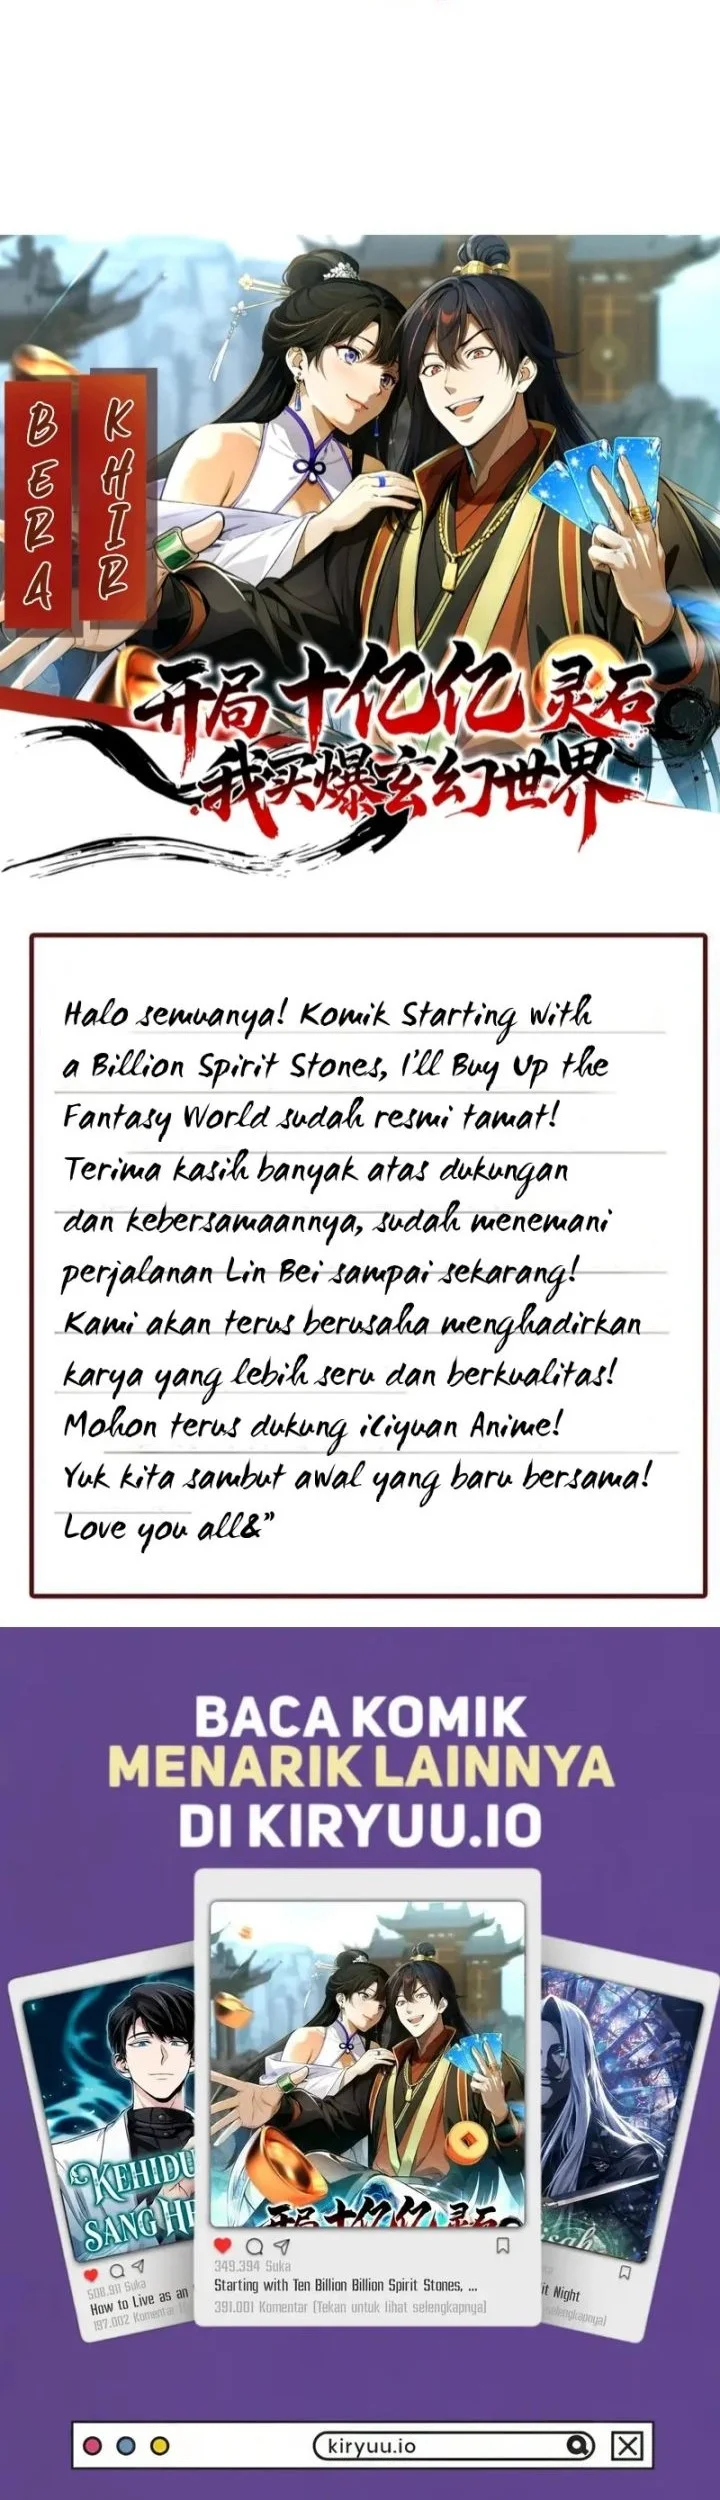 BERA
KHIR
开局十亿亿灵石
我买爆玄幻世界
Halo semuanya! Komik Starting With
a Billion Spirit Stones, I'll Buy Up the
Fantasy World sudah resmi tamat!
Terima kasih banyak atas dukungan
dan kebersamaannya, sudah menemani
perjalanan Lin Bei sampai sekarang!
Kami akan terus berusaha menghadirkan
karya yang lebih seru dan berkualitas!
Mohon terus dukung iCiyuan Anime!
Yuk kita sambut awal yang baru bersama!
Love you all&"
BACA KOMIK
MENARIK LAINNYA
DI KIRYUU.IO
KEHIDU
SANG HE
508.911 Suka
How to Live as an
197.002 Komentar
开局十亿亿灵石
349.394 Suka
Starting with Ten Billion Billion Spirit Stones, ...
391.001 Komentar (Tekan untuk lihat selengkapnya)
it Night
selengkapnya)
kiryuu.io